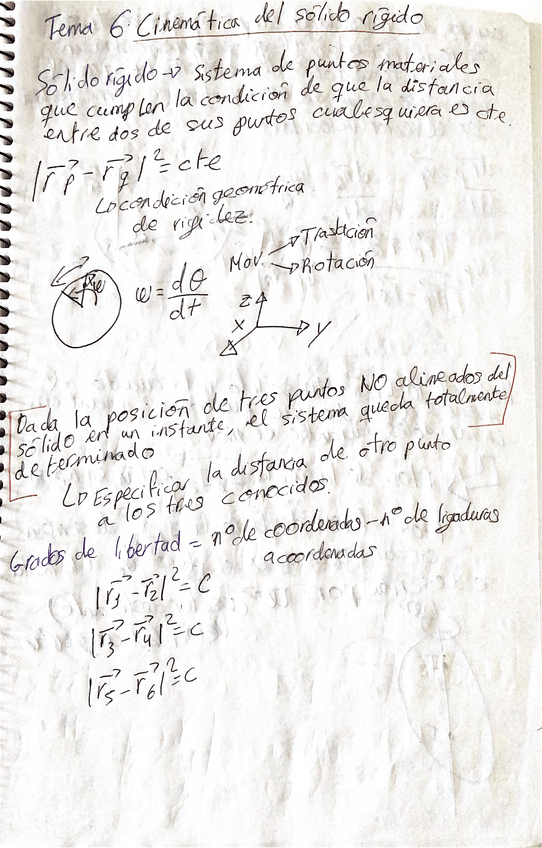 Tema 6. Cinemática del sólido rígido
Sólido rígido → Sistema de puntos materiales
que cumplen la condición de que la distancia
entre dos de sus puntos cualesquiera es cte.
|r⃗p - r⃗q|² = cte
↳ condición geométrica
de rigidez.
Mov. → Traslación
→ Rotación
ω = dθ/dt
z
x
y
Dada la posición de tres puntos NO alineados del
sólido en un instante, el sistema queda totalmente
determinado
↳ Especificar la distancia de otro punto
a los tres conocidos.
Grados de libertad = nº de coordenadas - nº de ligaduras
a coordenadas
|r⃗1 - r⃗2|² = C
|r⃗3 - r⃗4|² = C
|r⃗5 - r⃗6|² = C